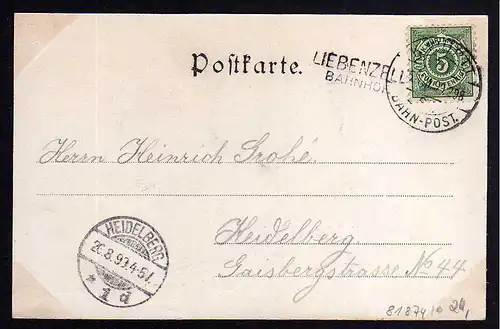 Postkarte.
LIEBENZELL
BAHNHOF
5
BAHN-POST.
Herrn Heinrich Grohé.
Heidelberg
Gaisbergstrasse No 44
HEIDELBERG
26.8.99.4-5N.
* 1 d